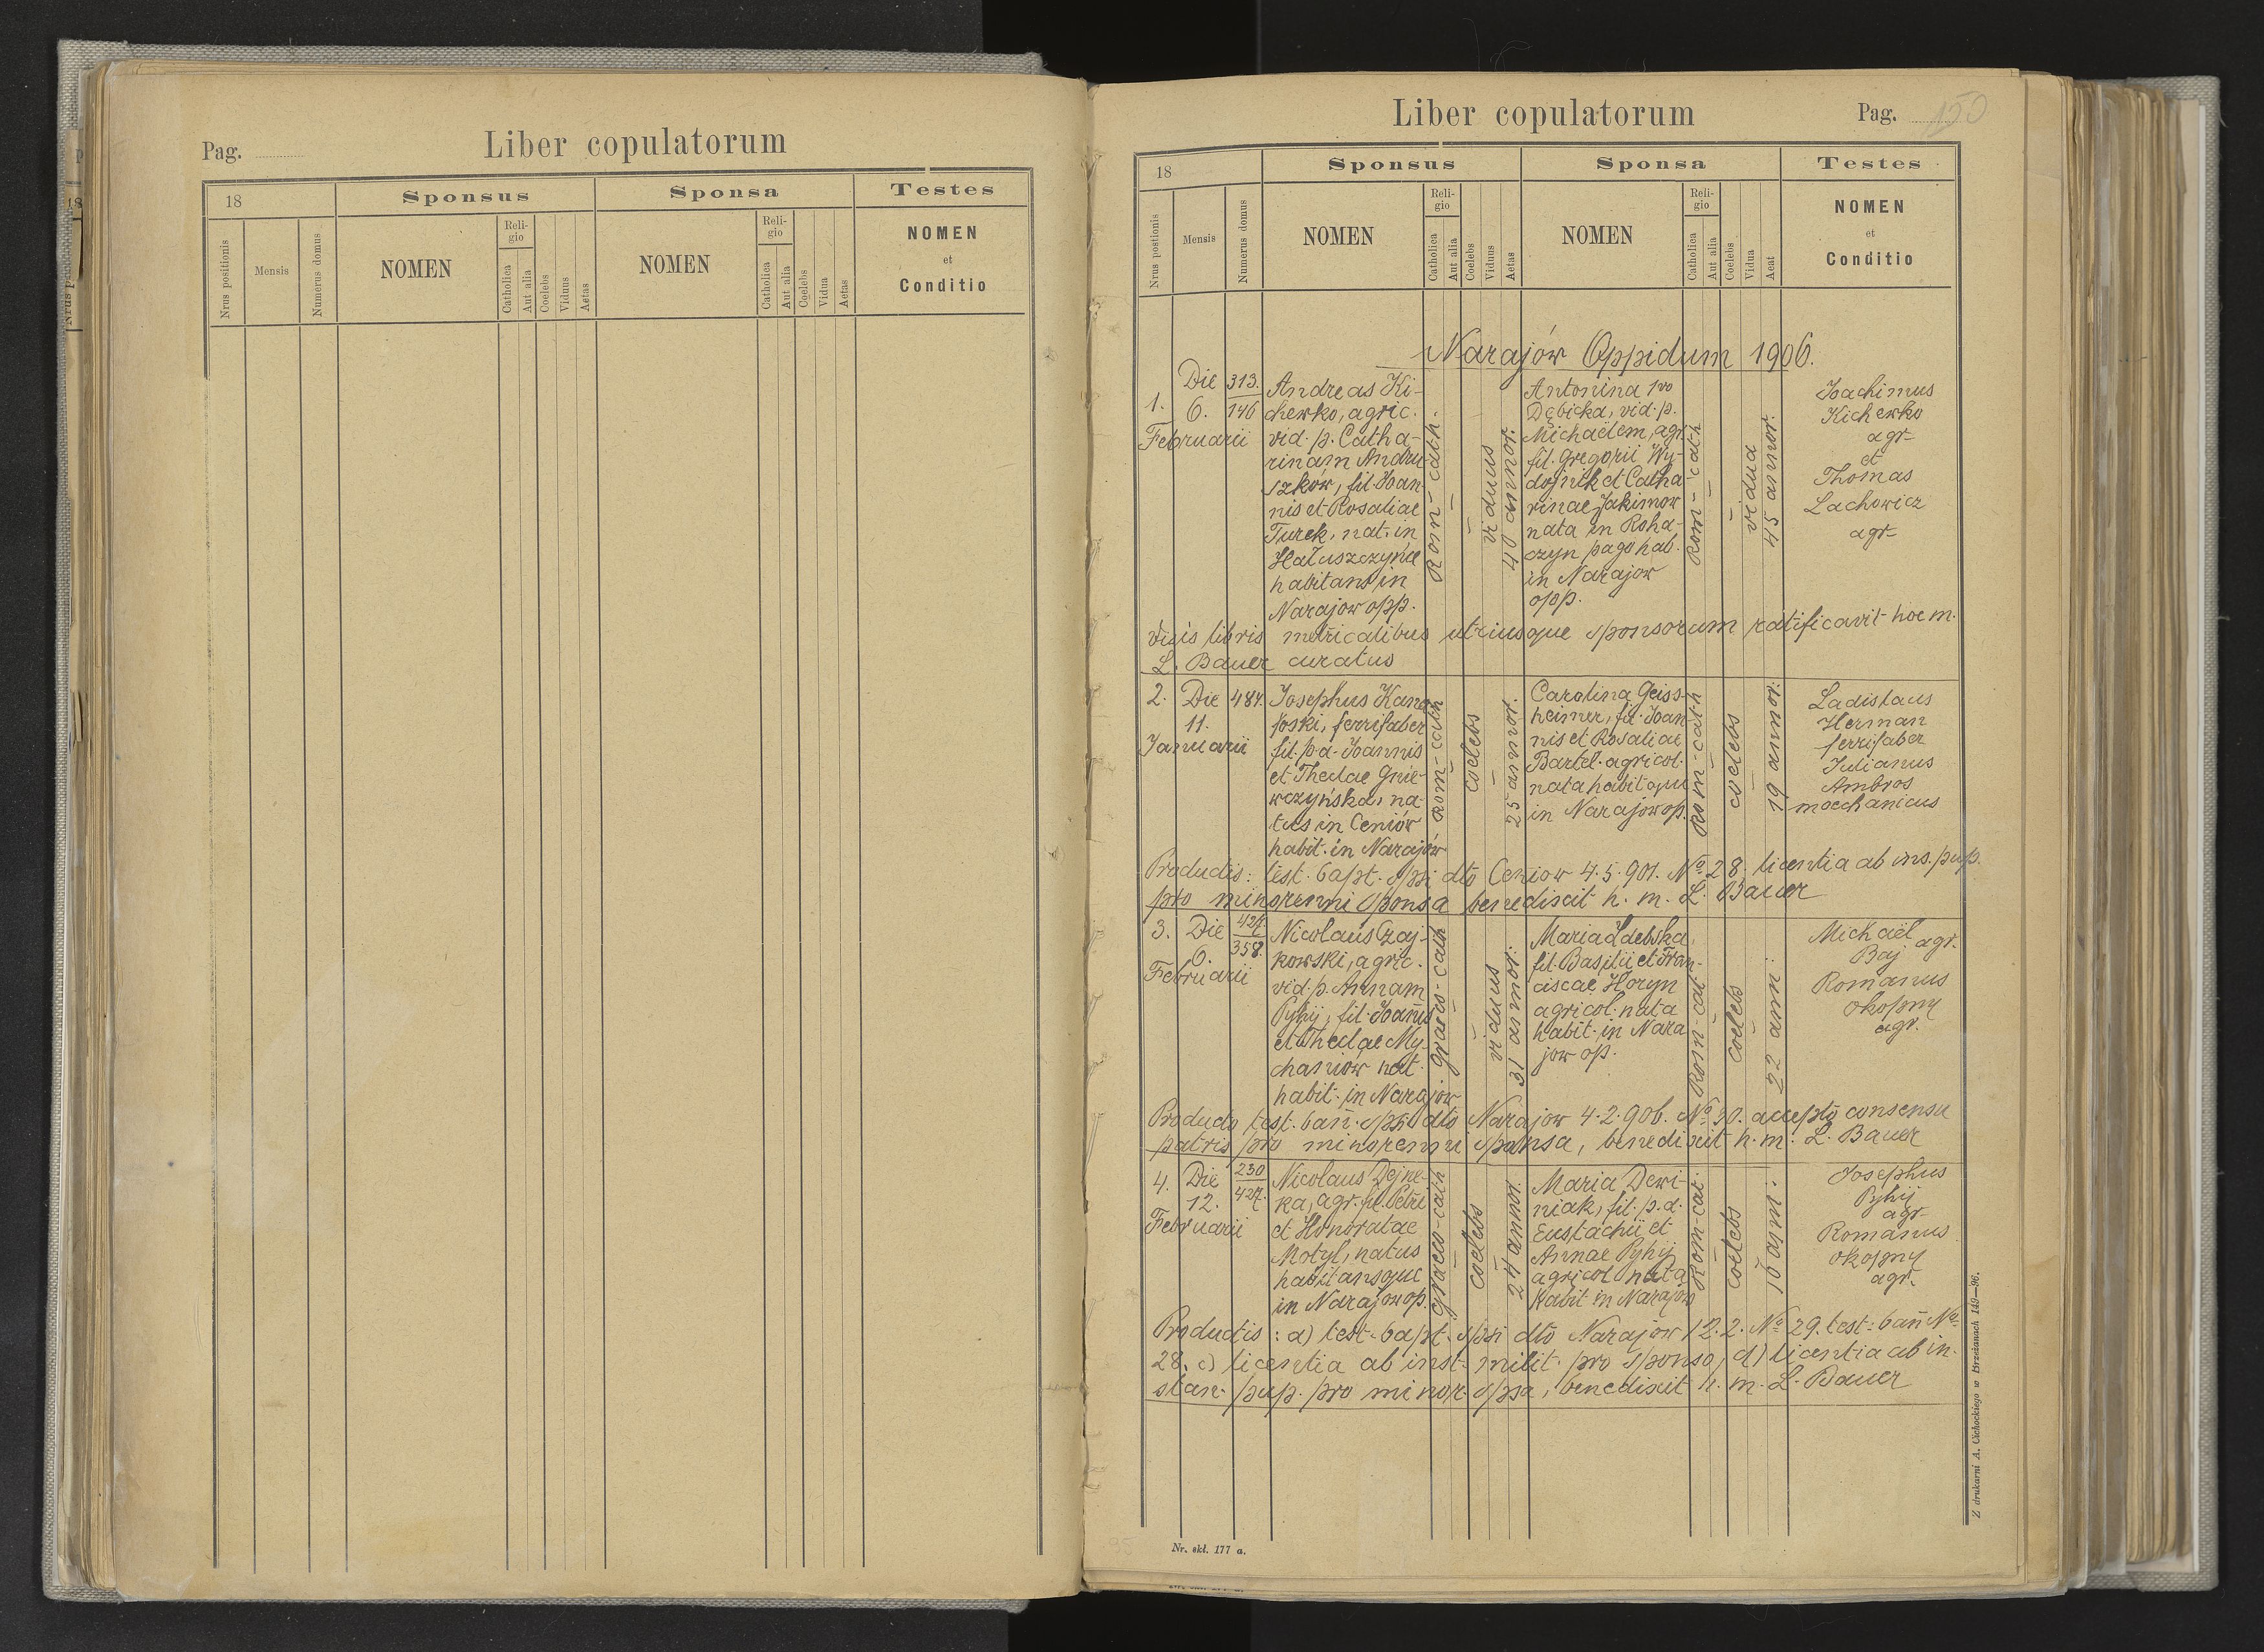 Pag.
Liber copulatorum
18
Sponsus
Sponsa
Testes
Nrus positionis
Mensis
Numerus domus
NOMEN
Reli-
gio
Catholica
Aut alia
Coelebs
Viduus
Aetas
NOMEN
Reli-
gio
Catholica
Aut alia
Coelebs
Vidua
Aetas
NOMEN
et
Conditio
Liber copulatorum
Pag. 150
18
Sponsus
Sponsa
Testes
Nrus postionis
Mensis
Numerus domus
NOMEN
Reli-
gio
Catholica
Aut alia
Coelebs
Viduus
Aetas
NOMEN
Reli-
gio
Catholica
Aut alia
Coelebs
Vidua
Aeat
NOMEN
et
Conditio
Narajów Oppidum 1906.
1.
Die
6.
Februarii
313.
146
Andreas Ki-
chewko, agric.
vid. p. Catha-
rinam Andru-
szków, fil. Joan-
nis et Rosaliae
Turek, nat. in
Hałuszczyńce
habitans in
Narajow opp.
Rom-cath.
viduus
40 annor.
Antonina 1vo
Dębicka, vid. p.
Michaëlem, agr.
fil. Gregorii Wy-
dojnik et Catha-
rinae Jakimow
nata in Roha-
czyn pago hab.
in Narajow
opp.
Rom-cath
vidua
45 annor.
Joachimus
Kichewko
agr-
et
Thomas
Lachowicz
agr-
Visis libris metricalibus utriusque sponsorum ratificavit hoc m.
L. Bauer curatus
2.
Die
11.
Januarii
484.
Josephus Kana-
foski, ferrifaber
fil. p. d. Joannis
et Theclae Gnie-
wczyńska, na-
tus in Ceniów
habit. in Narajów
Rom-cath
coelebs
25 annor.
Carolina Geiss-
heimer, fil. Joan-
nis et Rosaliae
Bartel. agricol.
nata habitque
in Narajow op.
Rom-cath
coelebs
19 annor.
Ladislaus
Herman
ferrifaber
Julianus
Ambros
moechanicus
Productis: test. bapt. spsi dto Ceniow 4.5.901. No 28. licentia ab ins. pup.
pro minorenni sponsa benedixit h. m. L. Bauer
3.
Die
6.
Februarii
427.
358.
Nicolaus Czaj-
kowski, agric.
vid. p. Annam
Pyhij, fil. Joannis
et Theclae My-
chasiów nat.
habit. in Narajow
graeco-cath
viduus
31 annor.
Maria Zdebska
fil. Basilii et Fran-
ciscae Horyn
agricol. nata
habit. in Nara
jow op.
Rom-cat.
coelebs
22 ann.
Michaël
Baj agr.
Romanus
Okopny
agr.
Producto test. bann. spsi dto Narajow 4.2.906. No 30. accepto consensu
patris pro minorenni sponsa, benedixit h. m. L. Bauer
4.
Die
12.
Februarii
230
427.
Nicolaus Dejne-
ka, agr. fil. Petri
et Honoratae
Motyl, natus
habitansque
in Narajow op.
graeco-cath
coelebs
24 annor.
Maria Dewi-
niak, fil. p. d.
Eustachii et
Annae Pyhij
agricol nata
habit in Narajow
Rom-cat.
coelebs
Josephus
Pyhij
agr-
Romanus
Okopny
agr.
Productis: a) test. bapt. spsi dto Narajow 12.2. No 29. test. bann No
28. c) licentia ab inst. milit. pro sponso, d) licentia ab in-
stan. pup. pro minor. spsa, benedixit h. m. L. Bauer
Nr. skł. 177 a.
Z drukarni A. Cichockiego w Brzeżanach 149—96.